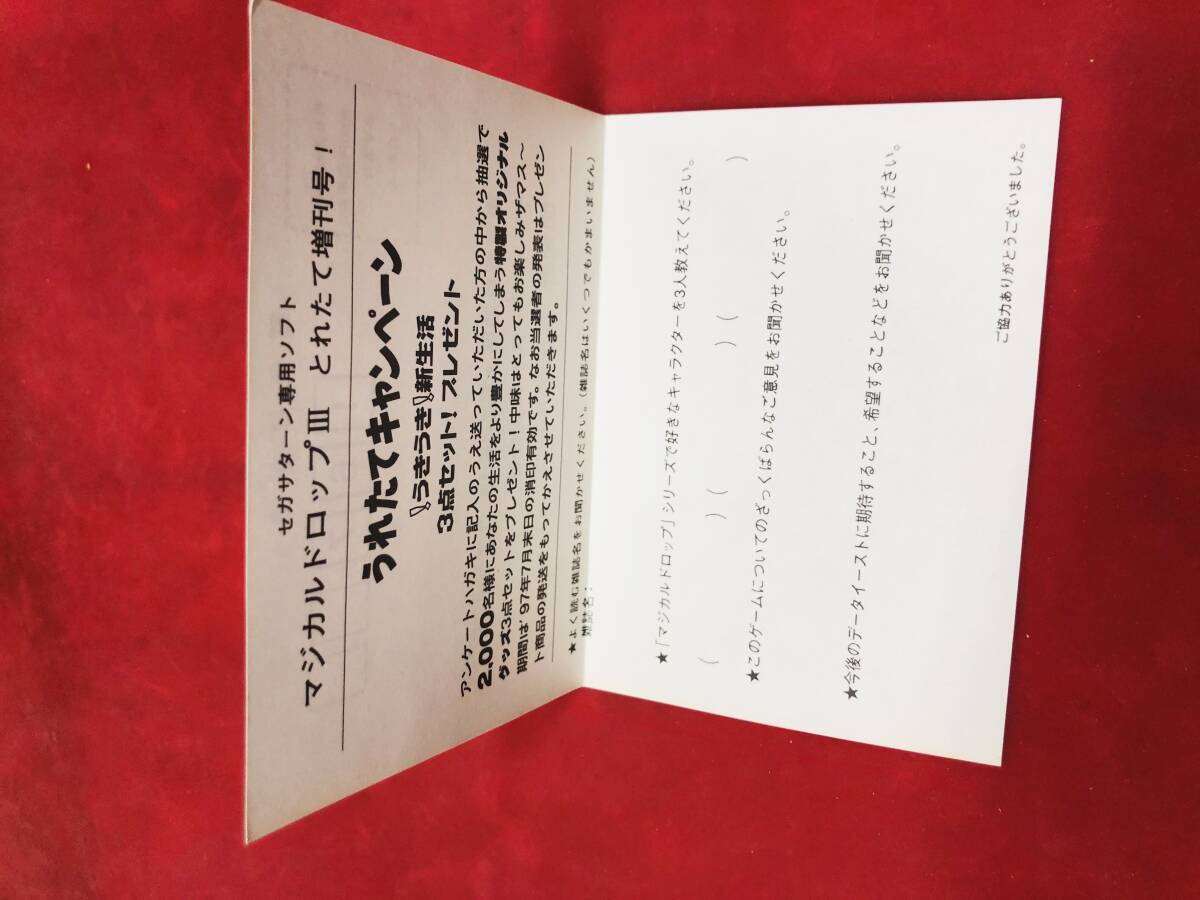 セガサターン専用ソフト
マジカルドロップⅢ とれたて増刊号！
うれたてキャンペーン
うきうき新生活
3点セット！プレゼント
アンケートハガキに記入のうえ送っていただいた方の中から抽選で
2,000名様にあなたの生活をより豊かにしてしまう特製オリジナル
グッズ3点セットをプレゼント！中味はとってもお楽しみザマス～
期間は'97年7月末日の消印有効です。なお当選者の発表はプレゼン
ト商品の発送をもってかえさせていただきます。
★よく読む雑誌名をお聞かせください。（雑誌名はいくつでもかまいません）
雑誌名：
★「マジカルドロップ」シリーズで好きなキャラクターを3人教えてください。
（　　　）（　　　）（　　　）
★このゲームについてのざっくばらんなご意見をお聞かせください。
★今後のデータイーストに期待すること、希望することなどをお聞かせください。
ご協力ありがとうございました。